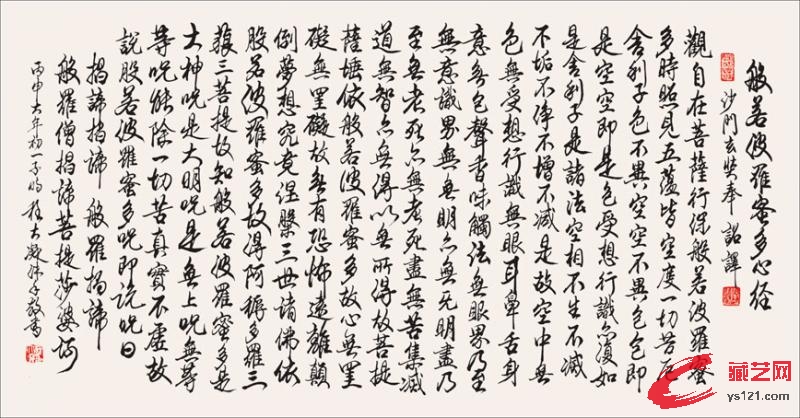 般若波羅蜜多心經
沙門玄奘奉 詔譯
觀自在菩薩行深般若波羅蜜
多時照見五蘊皆空度一切苦厄
舍利子色不異空空不異色色即
是空空即是色受想行識亦復如
是舍利子是諸法空相不生不滅
不垢不淨不增不減是故空中無
色無受想行識無眼耳鼻舌身
意無色聲香味觸法無眼界乃至
無意識界無無明亦無無明盡乃
至無老死亦無老死盡無苦集滅
道無智亦無得以無所得故菩提
薩埵依般若波羅蜜多故心無罣
礙無罣礙故無有恐怖遠離顛
倒夢想究竟涅槃三世諸佛依
般若波羅蜜多故得阿耨多羅三
藐三菩提故知般若波羅蜜多是
大神咒是大明咒是無上咒無等
等咒能除一切苦真實不虛故
說般若波羅蜜多咒即說咒曰
揭諦揭諦 般羅揭諦
般羅僧揭諦菩提莎婆訶
丙申大年初一
藏艺网
ys121.com